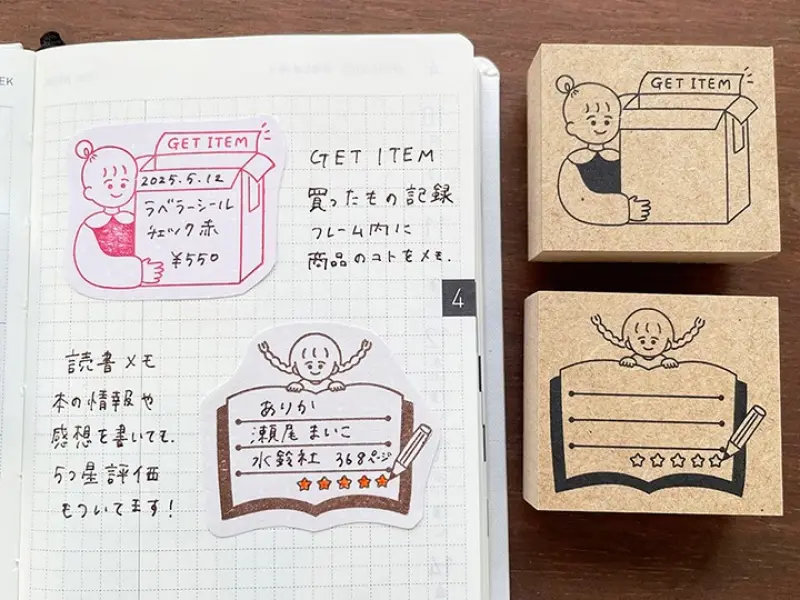 EK
GET ITEM
2025.5.12
ラベラーシール
チェック赤
¥550
GET ITEM
買ったもの記録
フレーム内に
商品のコトをメモ.
4
読書メモ
本の情報や
感想を書いても.
5つ星評価
もついてます!
ありか
瀬尾 まいこ
水鈴社 368ページ
GET ITEM